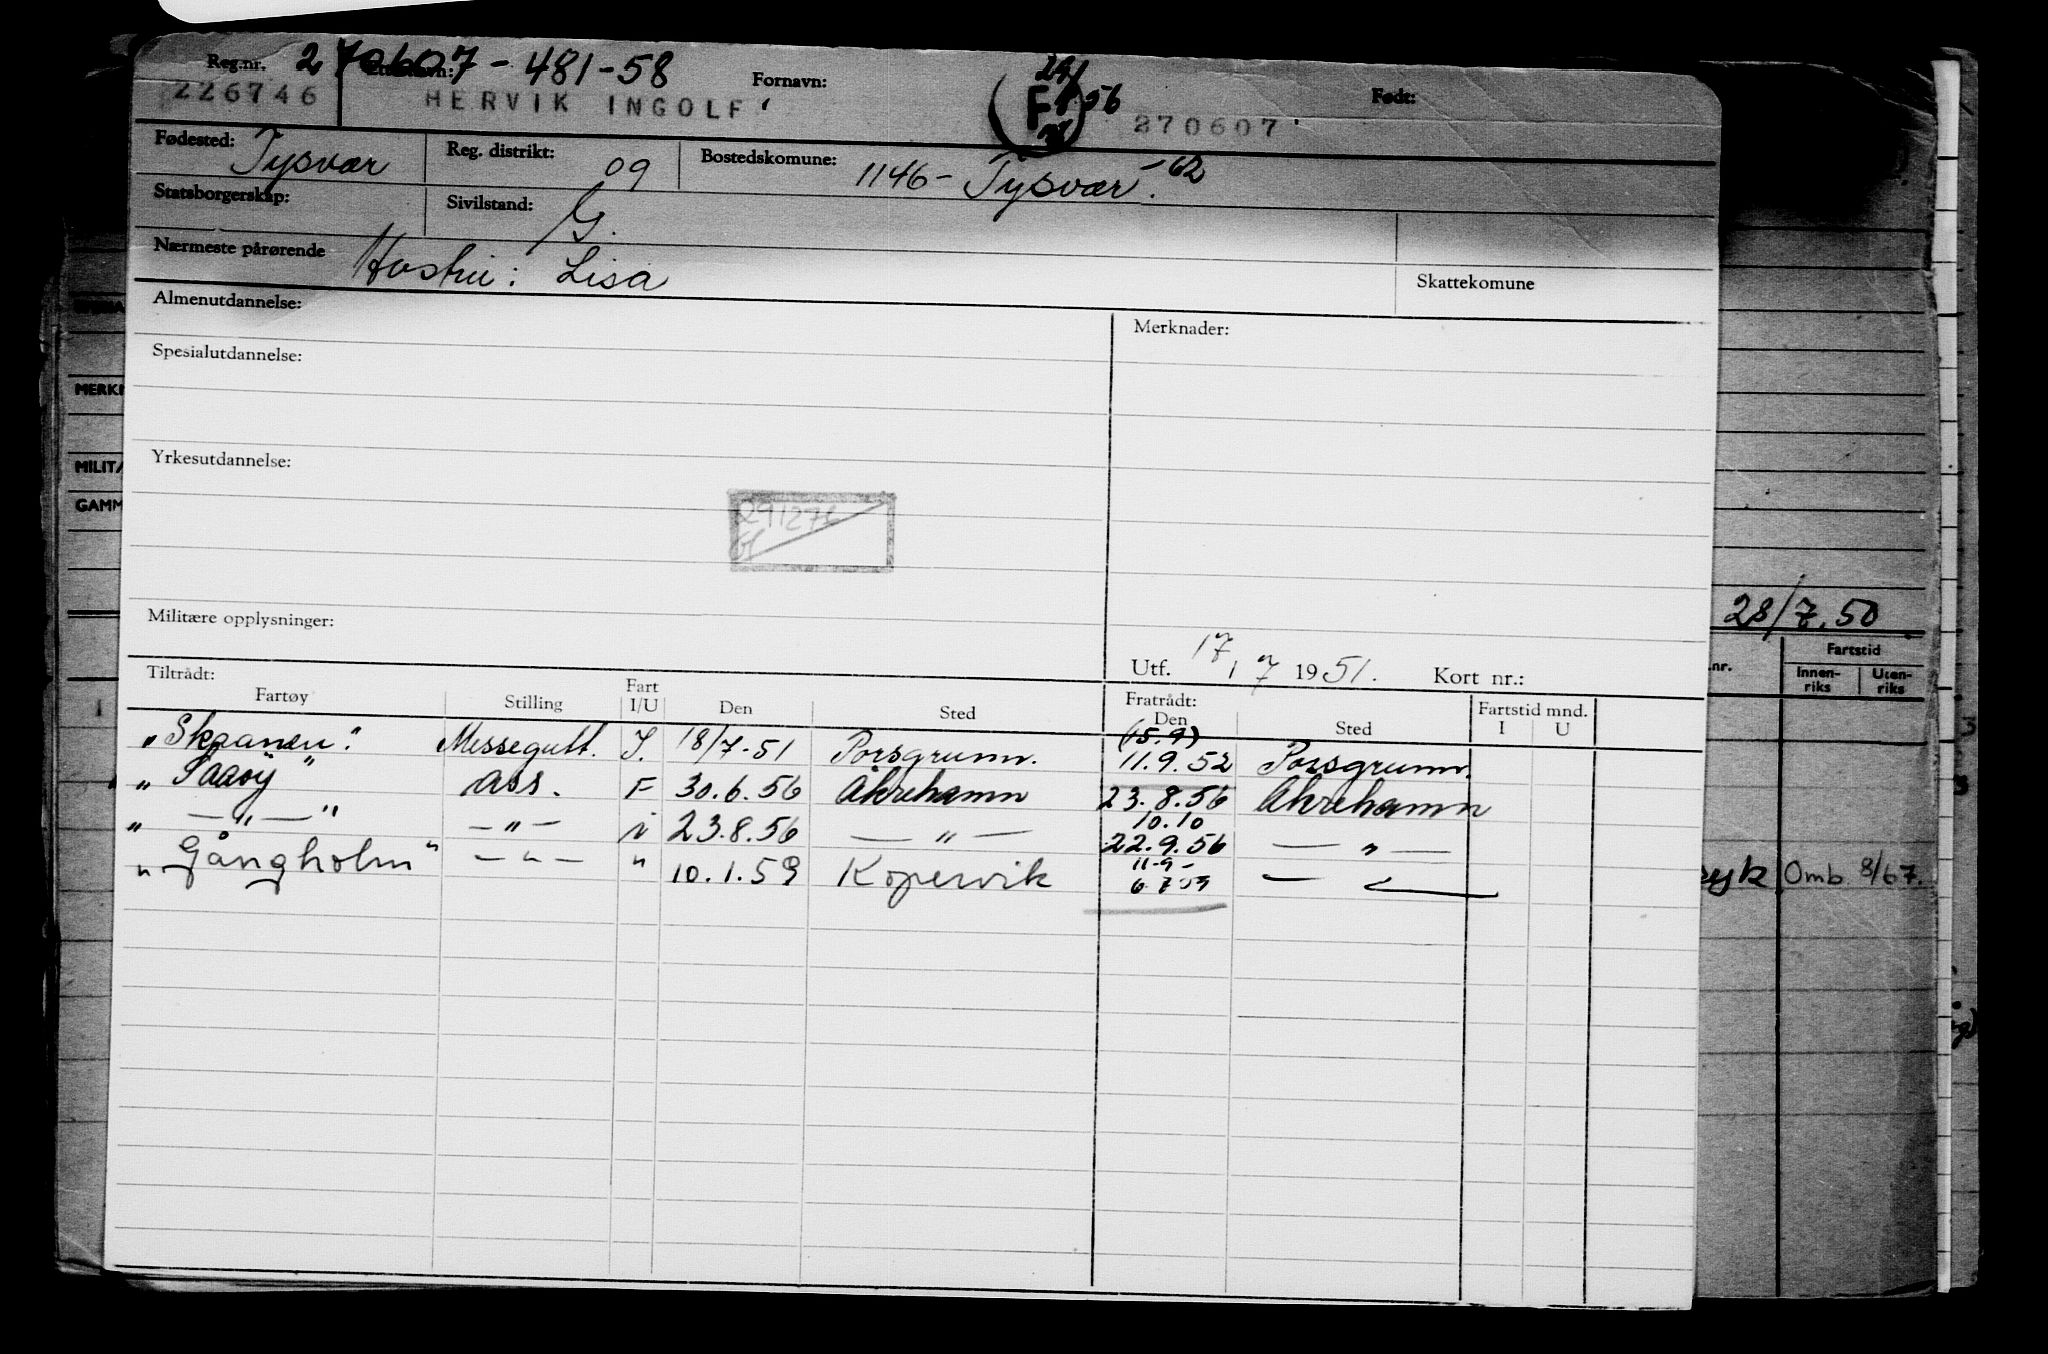 Reg.nr. 270607-481-58 Fornavn: 29/ Født:
226746 HERVIK INGOLF F 56 270607
Fødested: Tysvær Reg. distrikt: 09 Bostedskomune: 1146 - Tysvær. -62
Statsborgerskap: Sivilstand: G.
Nærmeste pårørende Hustru: Lisa Skattekomune
Almenutdannelse: Merknader:
Spesialutdannelse:
MERK
Yrkesutdannelse:
MILIT
GAMM
Militære opplysninger:
28/7.50
Utf. 17 / 7 1951. Kort nr.:
.nr. Fartstid
Innen-riks Uten-riks
Tiltrådt: Fratrådt:
Fartøy Stilling Fart I/U Den Sted Den Sted Fartstid mnd. I U
(15.9)
"Skaanen". Messegutt. I. 18/7-51 Porsgrunn. 11.9.52 Porsgrunn.
" Saaöy " ass. F 30.6.56 Åkrehamn 23.8.56 Åkrehamn
10.10
" — " — " — " — i 23.8.56 — " — 22.9.56 — " —
11-9-
" Gångholm " — " — " 10.1.59 Kopervik 6.7.59 — " —
Omb. 8/67.